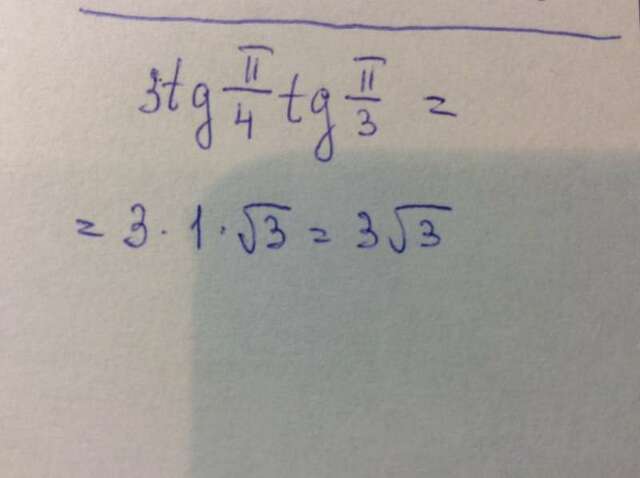 3tg π/4 tg π/3 =
= 3 · 1 · √3 = 3√3